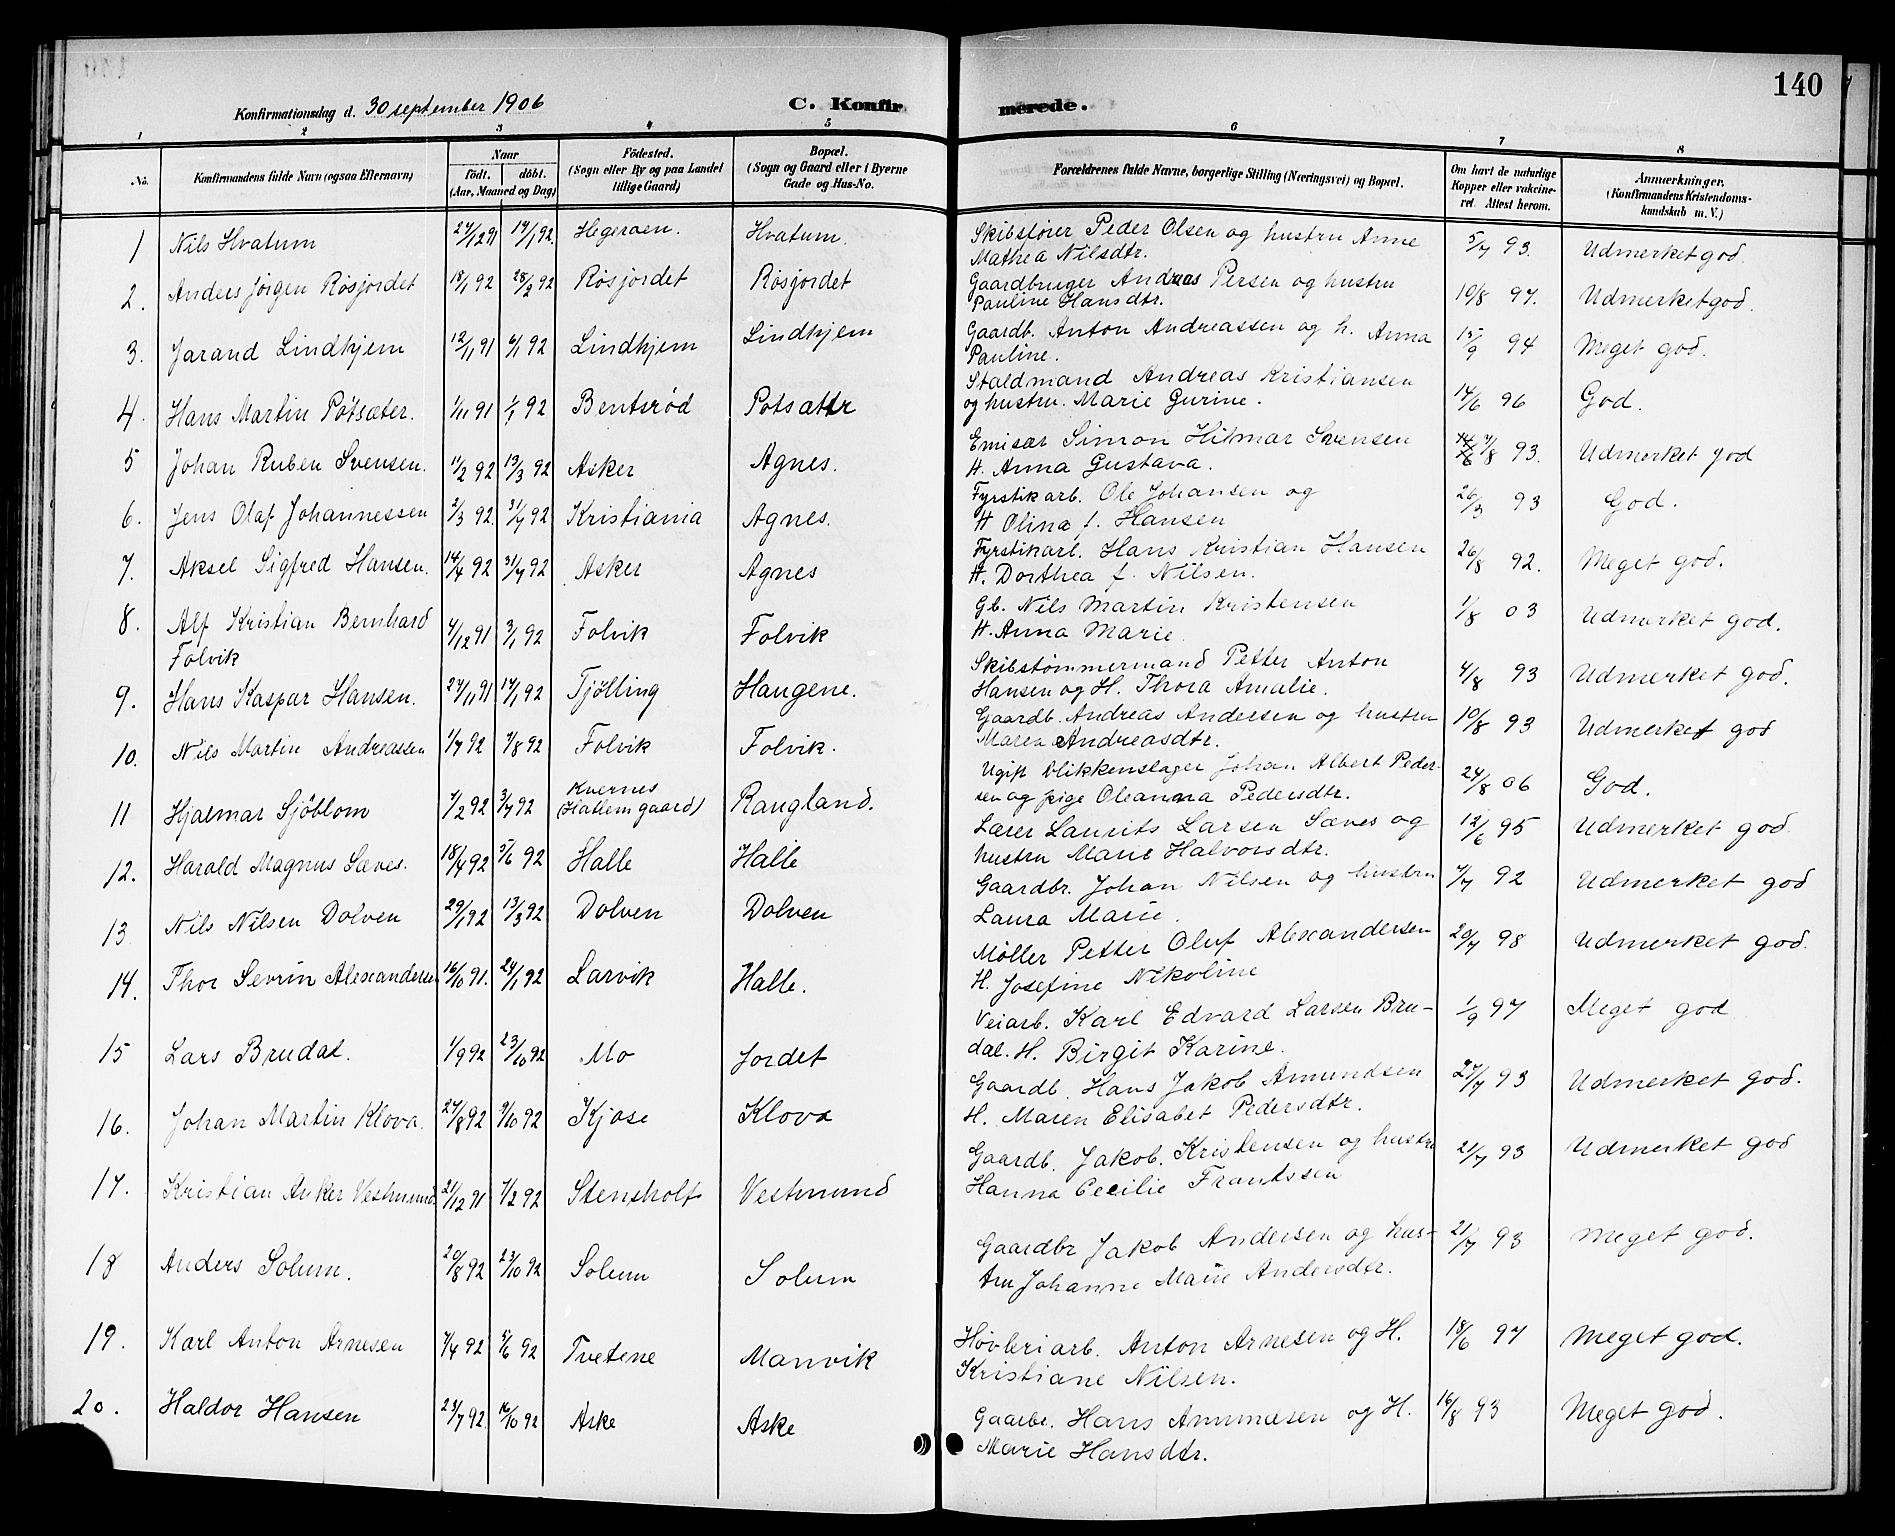 140
Konfirmationsdag d. 30 september 1906 C. Konfirmerede.
1 2 3 4 5 6 7 8
No. Konfirmandens fulde Navn (ogsaa Efternavn) Naar födt. döbt. (Aar, Maaned og Dag) Födested. (Sogn eller By og paa Landet tillige Gaard) Bopæl. (Sogn og Gaard eller i Byerne Gade og Hus-No. Forældrenes fulde Navne, borgerlige Stilling (Næringsvei) og Bopæl. Om havt de naturlige Kopper eller vakcineret. Attest herom. Anmærkninger, (Konfirmandens Kristendomskundskab m. V.)
1 Nils Hvatum 24/12 91 14/1 92 Hegeroen. Hvatum. Skibsfører Peder Olsen og hustru Anne
Mathea Nilsdtr. 5/7 93. Udmerket god.
2. Anders Jörgen Rösjordet 18/1 92 28/2 92 Rösjordet Rösjordet Gaardbruger Andreas Persen og hustru
Pauline Hansdtr. 10/8 97. Udmerket god.
3. Jarand Lindhjem 12/11 91 6/1 92 Lindhjem Lindhjem Gaardb. Anton Andreassen og h. Anna
Pauline. 15/9 94 Meget god.
4. Hans Martin Pötsæter. 1/11 91 1/1 92 Bentsröd Staldmand Andreas Kristiansen
og hustru. Marie Gurine. 14/6 96 God.
5 Johan Ruben Svensen. 11/2 92 13/3 92 Asker Agnes. Emisær Simon Hilmar Svensen
H. Anna Gustava. 93. Udmerket god
6. Jens Olaf Johannessen 2/3 92. 31/7 92 Kristiania Agnes. Fyrstikarb. Ole Johansen og
H Olina f. Hansen 26/3 93 God.
7. Aksel Sigfred Hansen. 14/4 92 31/7 92 Asker Agnes Fyrstikarb. Hans Kristian Hansen
H. Dorthea f. Nilsen. 26/8 92. Meget god.
8. Alf Kristian Bernhard
Folvik 4/12 91 3/1 92 Folvik Folvik Gb. Nils Martin Kristensen
H. Anna Marie. 1/8 03 Udmerket god.
9. Hans Kaspar Hansen. 24/11 91 17/1 92 Tjölling Haugene. Skibstømmermand Petter Anton
Hansen og H. Thora Amalie. 4/8 93 Udmerket god.
10. Nils Martin Andreassen 1/7 92 7/8 92 Folvik Folvik. Gaardb. Andreas Andersen og hustru
Maren Andreasdtr. 10/8 93 Udmerket god
11 Hjalmar Sjöblom 7/2 92 3/7 92 Kvernes
(Hatlemgaard) Rangland. Ugift blikkenslager Johan Albert Peder-
sen og pige Oleanna Pedersdtr. 24/8 06 God.
12. Harald Magnus Sæves. 18/4 92 5/6 92 Halle Halle Lærer Laurits Larsen Sæves og
hustru Marie Halvorsdtr. 12/6 95 Udmerket god.
13 Nils Nilsen Dolven 29/1 92 13/3 92 Dolven Dolven Gaardbr. Johan Nilsen og hustru
Laura Marie. 7/7 92 Udmerket god
14. Thor Sevrin Alexandersen 16/10 91. 24/1 92 Larvik Halle. Møller Petter Oluf Alexandersen
H. Josefine Nikoline 20/7 98 Udmerket god.
15 Lars Brudal. 1/9 92 23/10 92 Mo Jordet Veiarb. Karl Edvard Larsen Bru-
dal. H. Birgit Karine. 1/9 97 Meget god
16. Johan Martin Klova. 27/8 92 9/10 92 Kjose Klova Gaardb. Hans Jakob Amundsen
H. Maren Elisabet Pedersdtr. 27/7 93 Udmerket god.
17. Kristian Anker Vestmund. 21/12 91 7/2 92 Stensholt Vestmund Gaardb. Jakob. Kristensen og hustru
Hanna Cecilie Frantssen 21/7 93 Udmerket god
18 Anders Solum. 20/8 92 23/10 92 Solum Solum Gaardbr Jakob Andersen og hus-
tru Johanne Marie Andersdtr. 21/7 93 Meget god.
19. Karl Anton Arnesen 7/4 92 5/6 92 Tvetene Manvik Høvleriarb. Anton Arnesen og H.
Kristiane Nilsen. 18/6 97 Meget god.
20. Haldor Hansen 23/7 92 16/10 92 Aske Aske Gaarbr. Hans Ammnesen og H.
Marie Hansdtr. 16/8 93 Meget god.